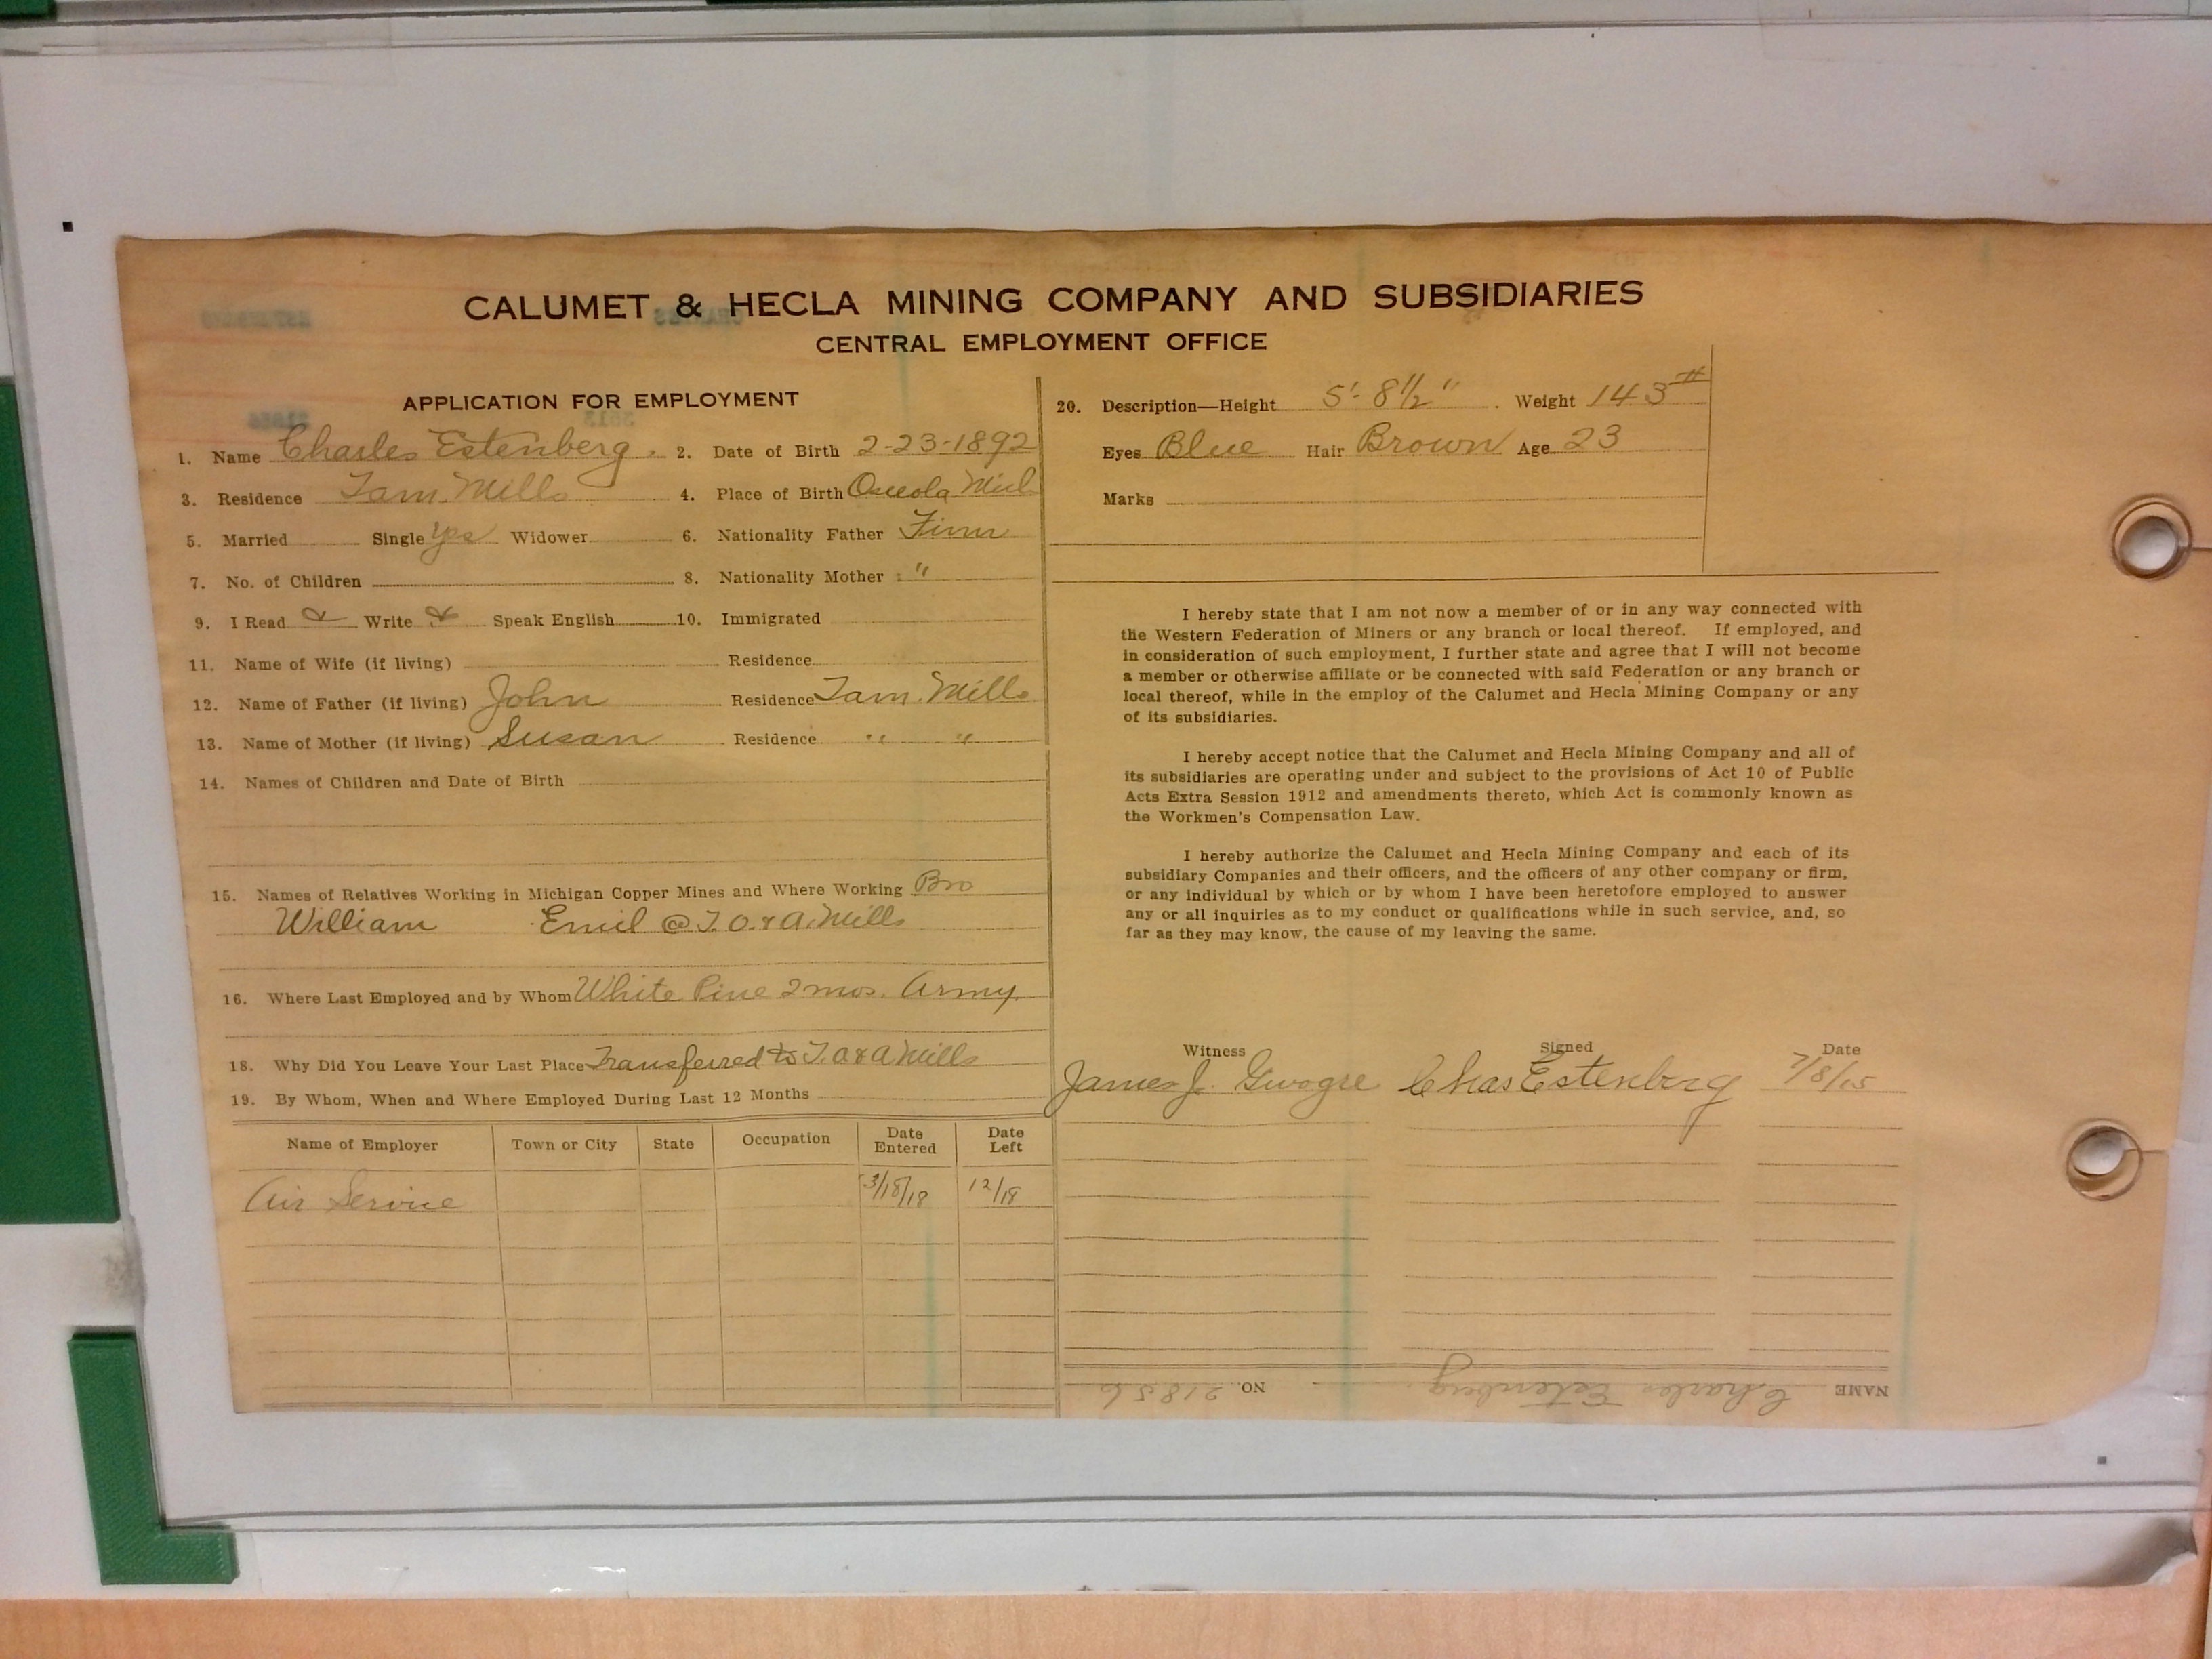 CALUMET & HECLA MINING COMPANY AND SUBSIDIARIES
CENTRAL EMPLOYMENT OFFICE
APPLICATION FOR EMPLOYMENT
1. Name Charles Estenberg. 2. Date of Birth 2-23-1892
3. Residence Tam. Mills 4. Place of Birth Osceola Mich
5. Married Single Yes Widower 6. Nationality Father Finn
7. No. of Children 8. Nationality Mother "
9. I Read & Write & Speak English 10. Immigrated
11. Name of Wife (if living) Residence
12. Name of Father (if living) John Residence Tam. Mills
13. Name of Mother (if living) Susan Residence " "
14. Names of Children and Date of Birth
15. Names of Relatives Working in Michigan Copper Mines and Where Working Bro
William Emil @ T. O. & A. Mills
16. Where Last Employed and by Whom White Pine 2 mos. Army
18. Why Did You Leave Your Last Place Transferred to T. O & A Mills
19. By Whom, When and Where Employed During Last 12 Months
Name of Employer Town or City State Occupation Date Entered Date Left
Air Service 3/18/18 12/18
20. Description—Height 5'- 8 1/2" Weight 143 #
Eyes Blue Hair Brown Age 23
Marks
I hereby state that I am not now a member of or in any way connected with
the Western Federation of Miners or any branch or local thereof. If employed, and
in consideration of such employment, I further state and agree that I will not become
a member or otherwise affiliate or be connected with said Federation or any branch or
local thereof, while in the employ of the Calumet and Hecla Mining Company or any
of its subsidiaries.
I hereby accept notice that the Calumet and Hecla Mining Company and all of
its subsidiaries are operating under and subject to the provisions of Act 10 of Public
Acts Extra Session 1912 and amendments thereto, which Act is commonly known as
the Workmen's Compensation Law.
I hereby authorize the Calumet and Hecla Mining Company and each of its
subsidiary Companies and their officers, and the officers of any other company or firm,
or any individual by which or by whom I have been heretofore employed to answer
any or all inquiries as to my conduct or qualifications while in such service, and, so
far as they may know, the cause of my leaving the same.
Witness Signed Date
James J. Chas Estenberg 7/8/15
NAME Charles Estenberg. NO. 21856